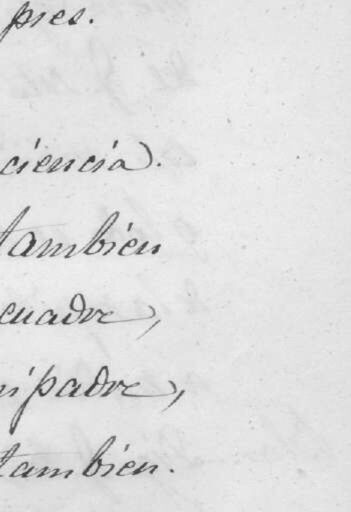 pies.
ciencia.
también
cuadre,
mi padre,
también.